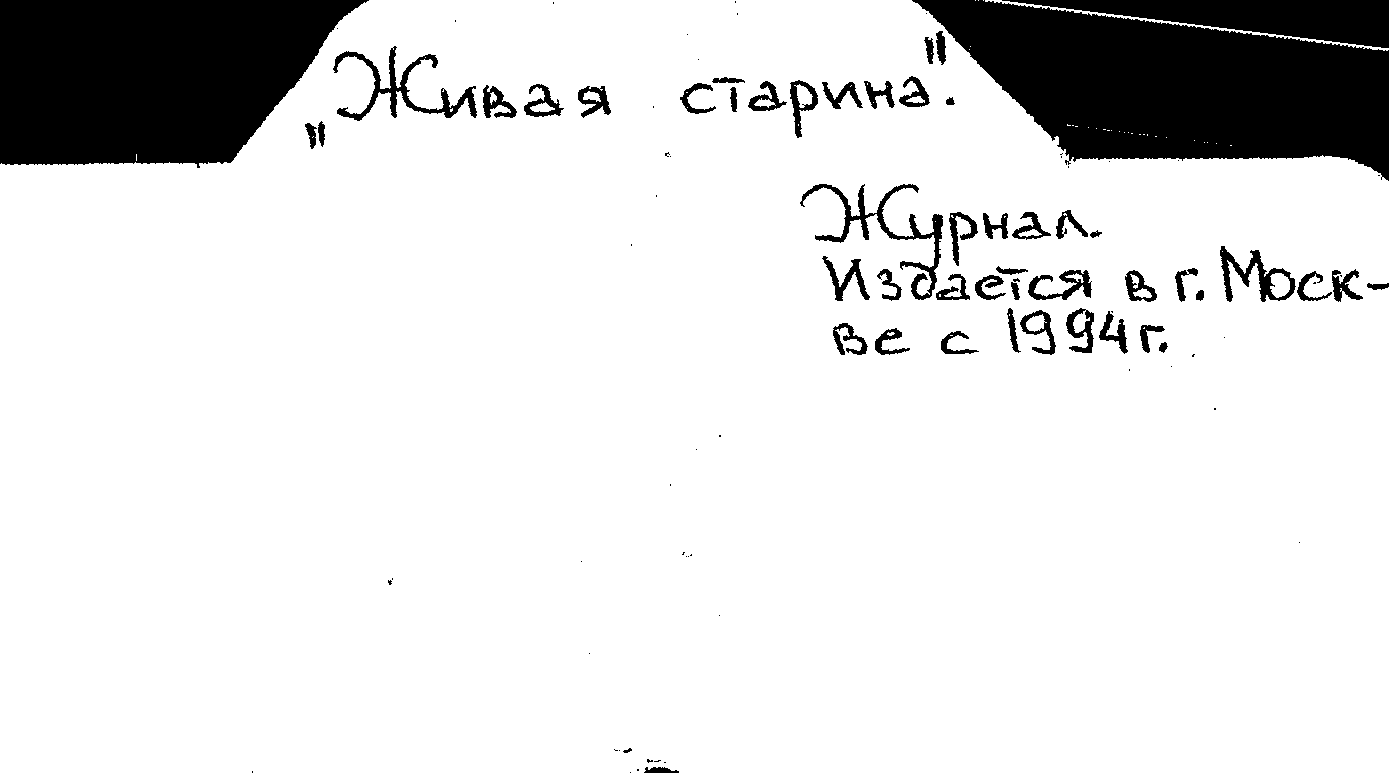 „Живая старина".
Журнал.
Издается в г. Моск-
ве с 1994г.